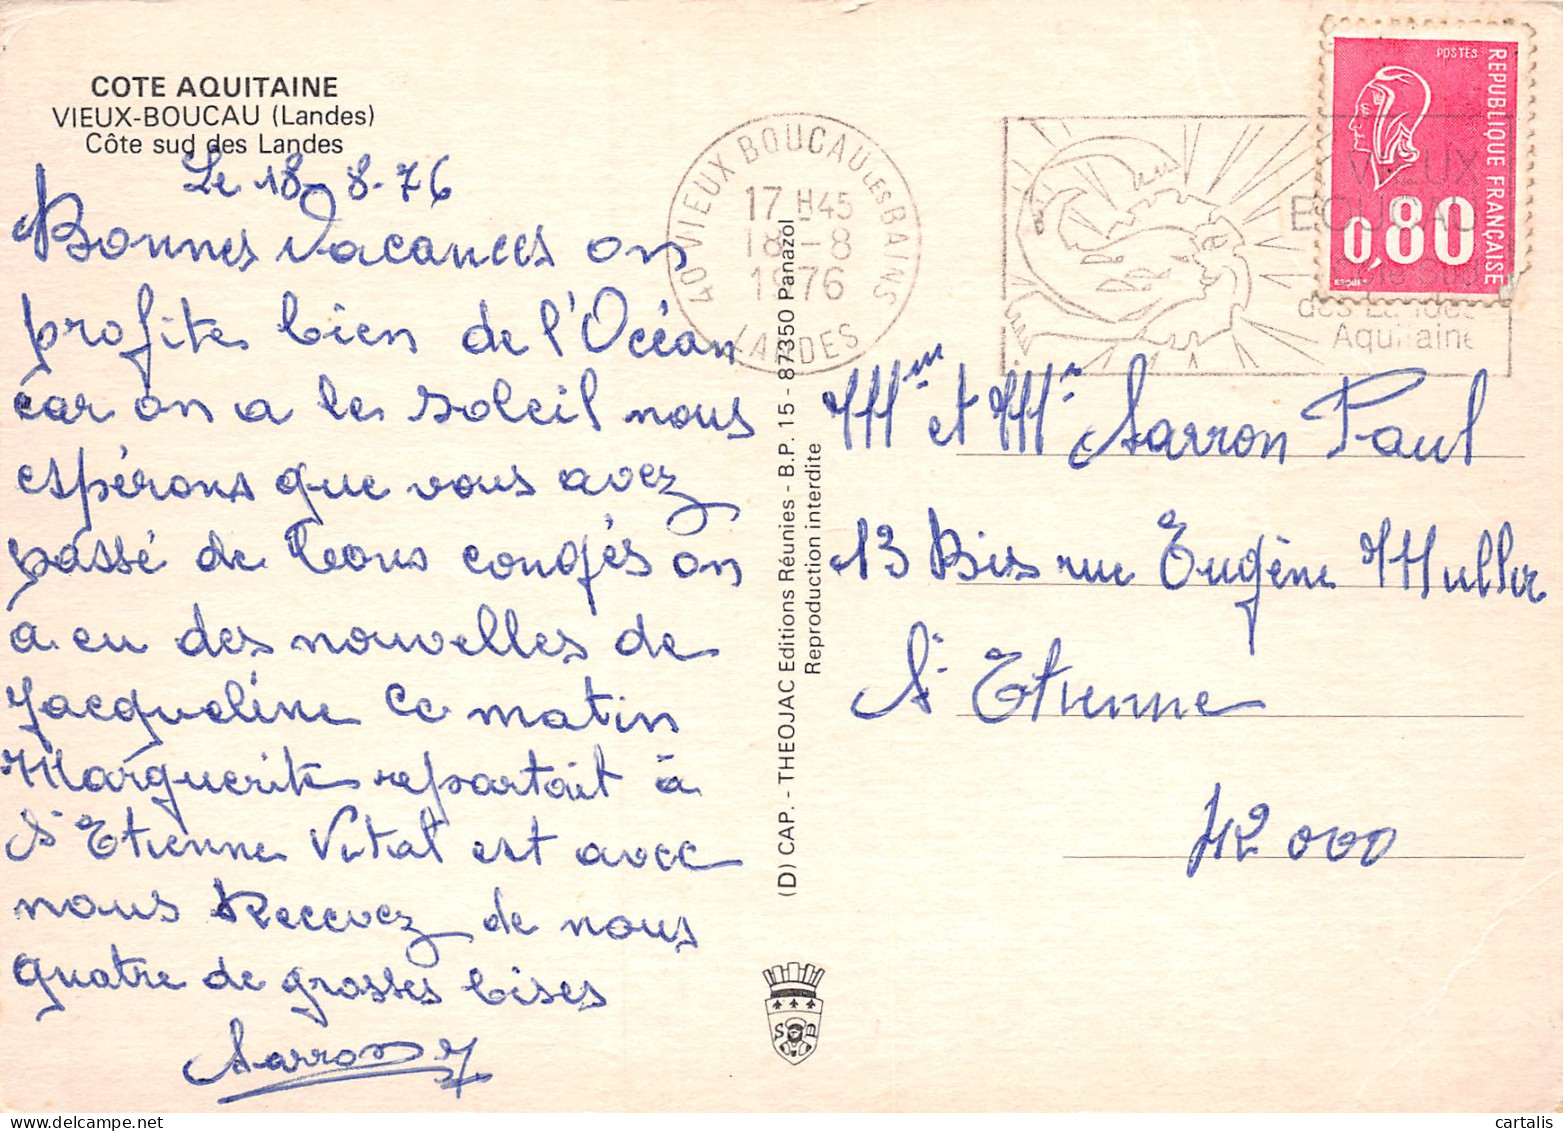 COTE AQUITAINE
VIEUX-BOUCAU (Landes)
Côte sud des Landes
Le 18-8-76
Bonnes Vacances on
profite bien de l'Océan
car on a le soleil nous
espérons que vous avez
passé de bons congés on
a eu des nouvelles de
Jacqueline ce matin
Marguerite repartait à
St Etienne Vital est avec
nous Recevez de nous
quatre de grosses bises
Sarron
(D) CAP. - THEOJAC Editions Réunies - B.P. 15 - 87350 Panazol
Reproduction interdite
S D
40 VIEUX BOUCAU LES BAINS
17 H45
18 - 8
1976
LANDES
VIEUX
BOUCAU
des Landes
Aquitaine
POSTES
REPUBLIQUE FRANÇAISE
0,80
Mme et Mr Sarron Paul
13 Bis rue Eugène Muller
St Etienne
42 000
cartalis